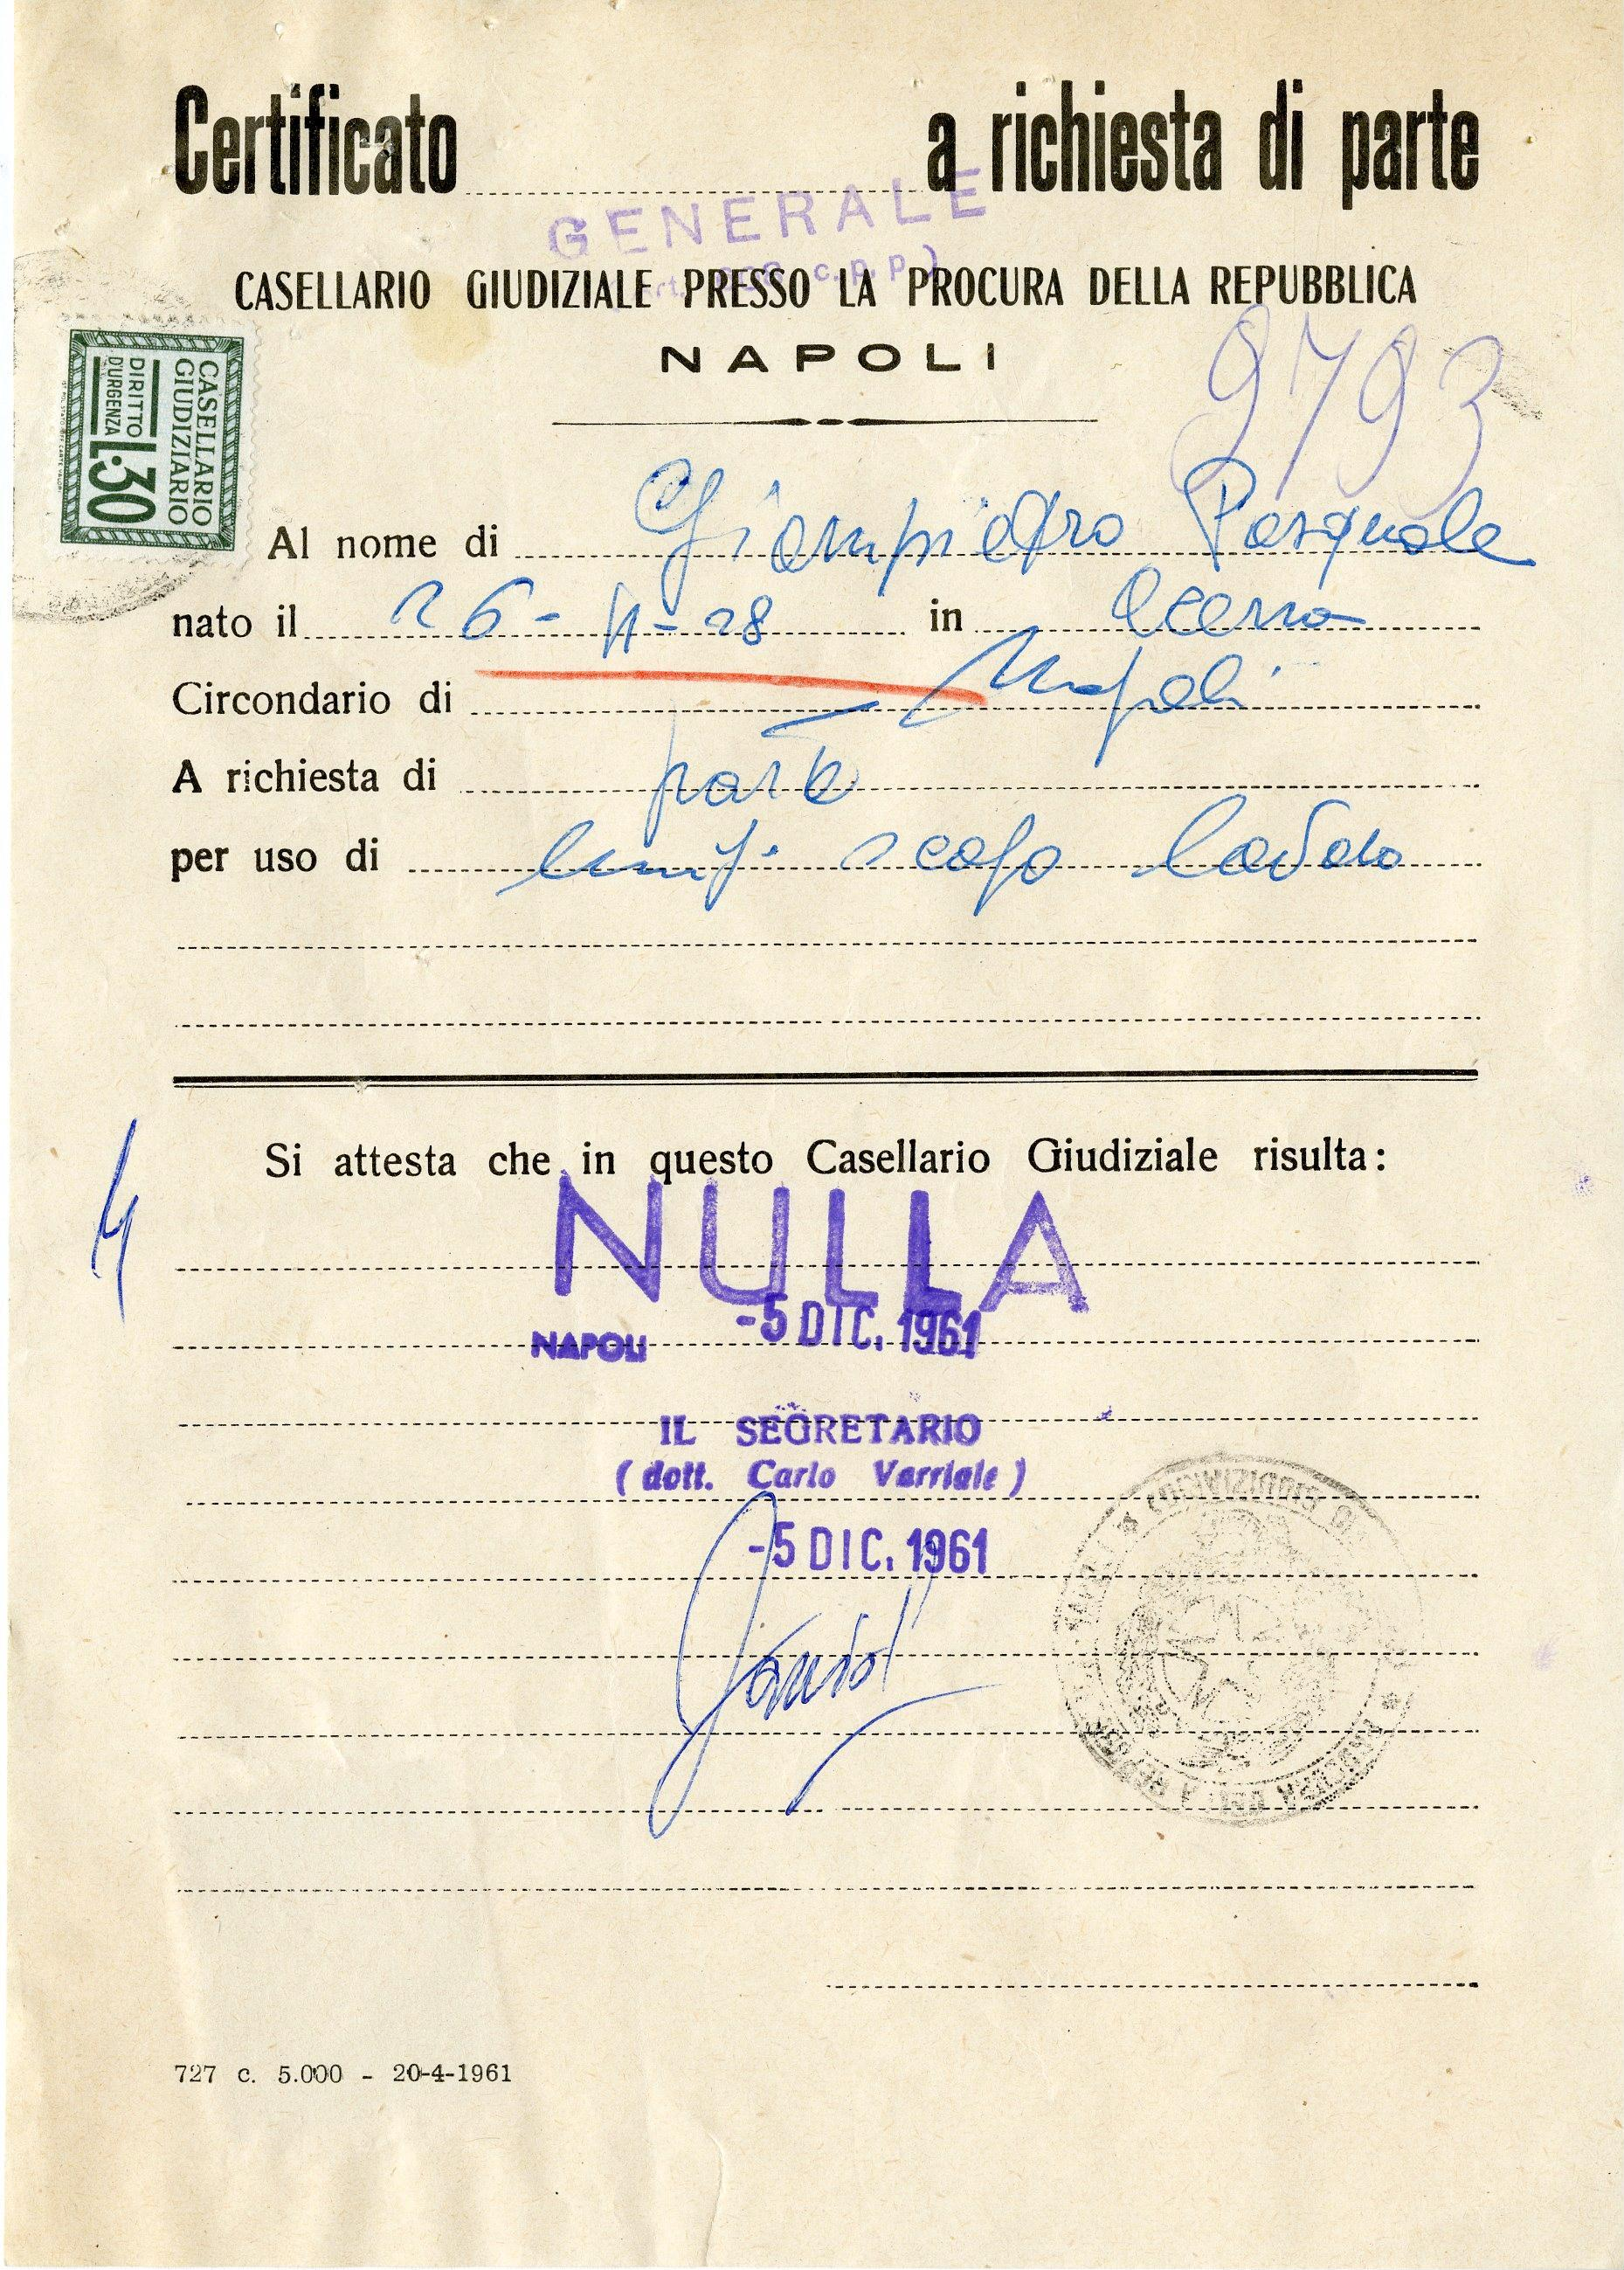 Certificato a richiesta di parte
GENERALE
c. p. p.)
CASELLARIO GIUDIZIALE PRESSO LA PROCURA DELLA REPUBBLICA
NAPOLI
9793
CASELLARIO
GIUDIZIARIO
DIRITTO
D'URGENZA
L.30
Al nome di Giampietro Pasquale
nato il 26-11-28 in Acerra
Circondario di Napoli
A richiesta di parte
per uso di emig. scopo lavoro
Si attesta che in questo Casellario Giudiziale risulta:
NULLA
NAPOLI -5 DIC. 1961
IL SEGRETARIO
(dott. Carlo Varriale)
-5 DIC. 1961
727 c. 5.000 - 20-4-1961